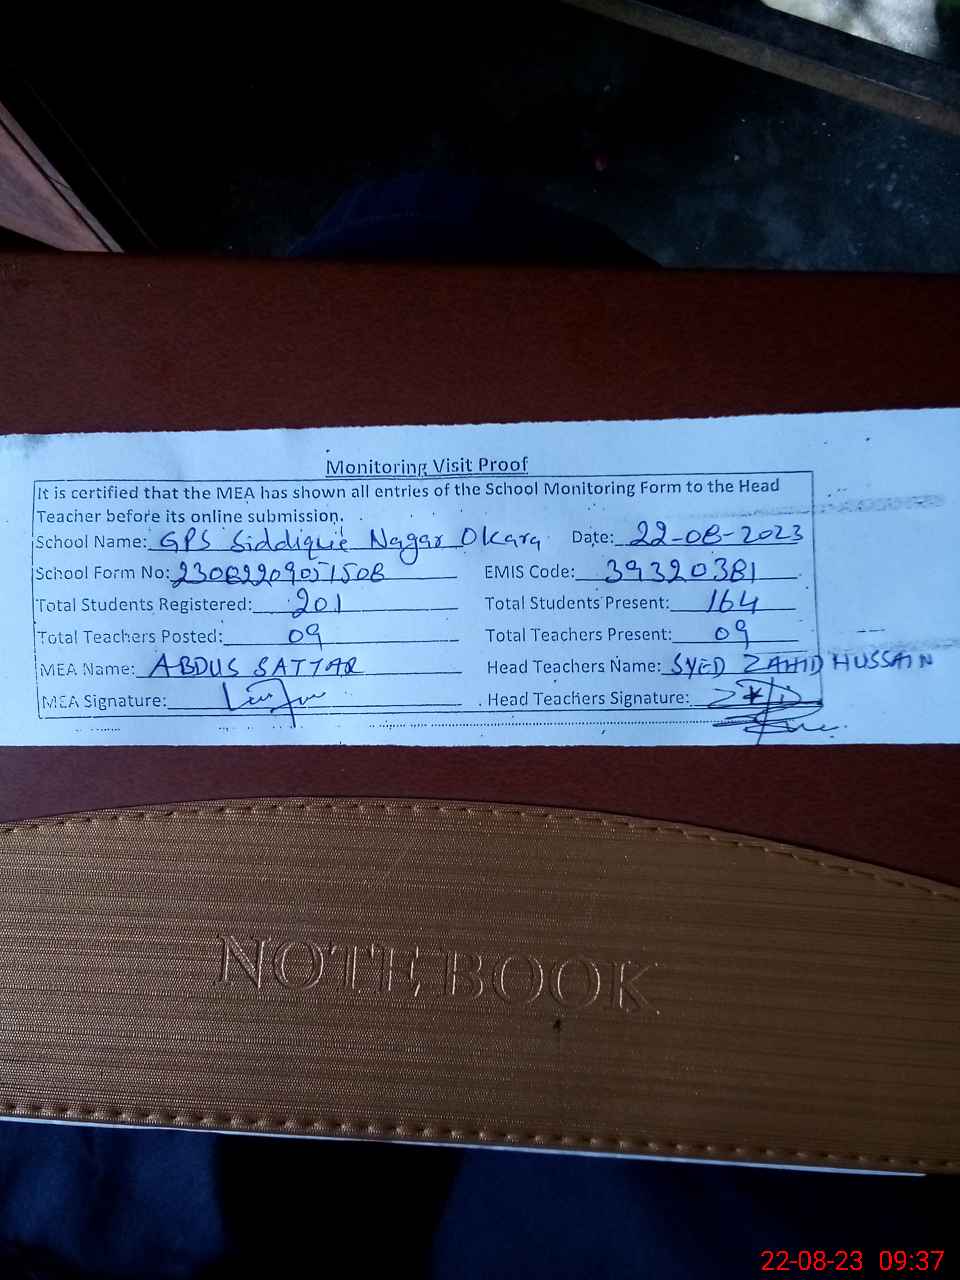 Monitoring Visit Proof
It is certified that the MEA has shown all entries of the School Monitoring Form to the Head
Teacher before its online submission.
School Name: GPS Siddiquie Nagar Okara Date: 22-08-2023
School Form No: 2308220905150B EMIS Code: 39320381
Total Students Registered: 201 Total Students Present: 164
Total Teachers Posted: 09 Total Teachers Present: 09
MEA Name: ABDUS SATTAR Head Teachers Name: SYED ZAHID HUSSAIN
MEA Signature: Head Teachers Signature:
NOTE BOOK
22-08-23 09:37